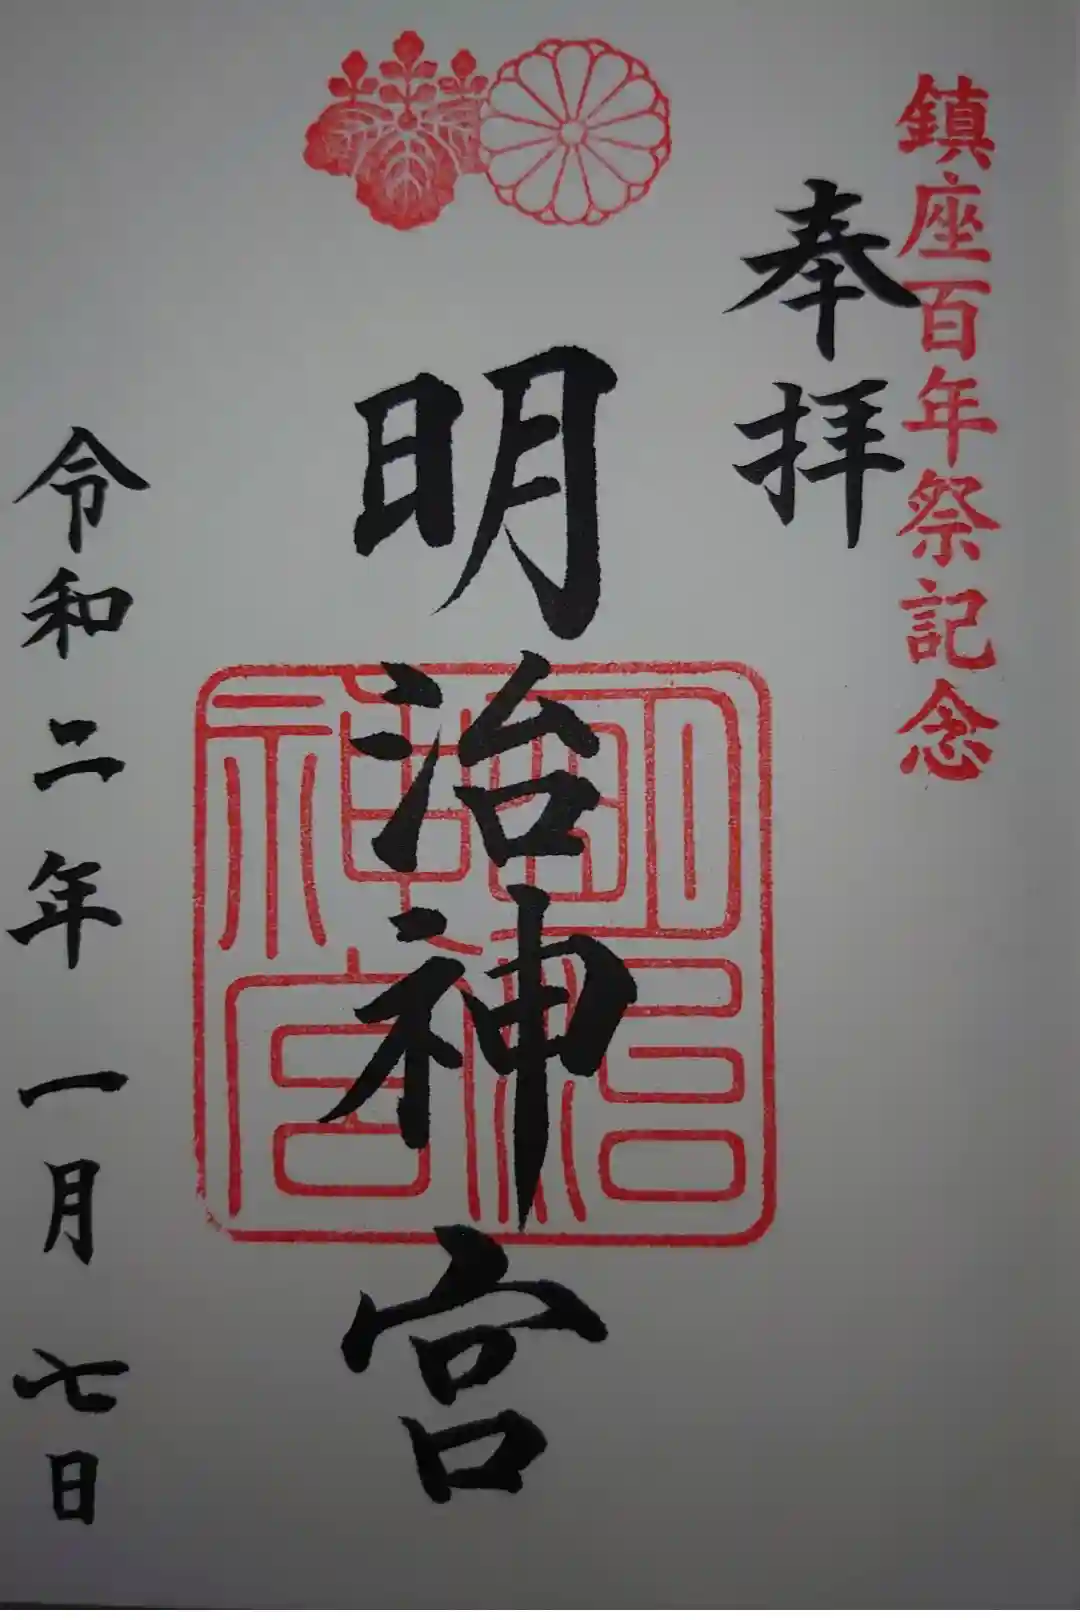 鎮座百年祭記念
奉拝
明治神宮
明治神宮
令和二年一月七日